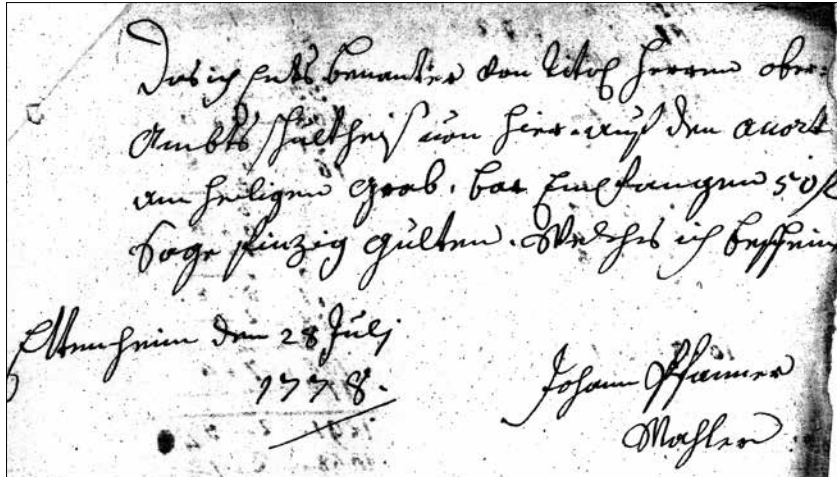 Das ich Ents benanter von titol Herren ober-
Ambts schultheis von hier. auf den accort
am heiligen grab. bar Empfangen 50 f
Sage finzig gulten. Welches ich bescheine
Ettenheim den 28 Julj
1778.
Johann Pfanner
Mahler